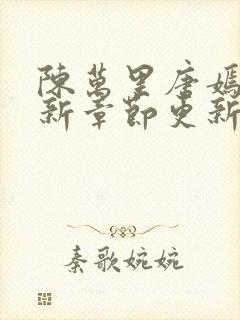 陳萬里唐嫣
新章節更新
秦歌婉婉